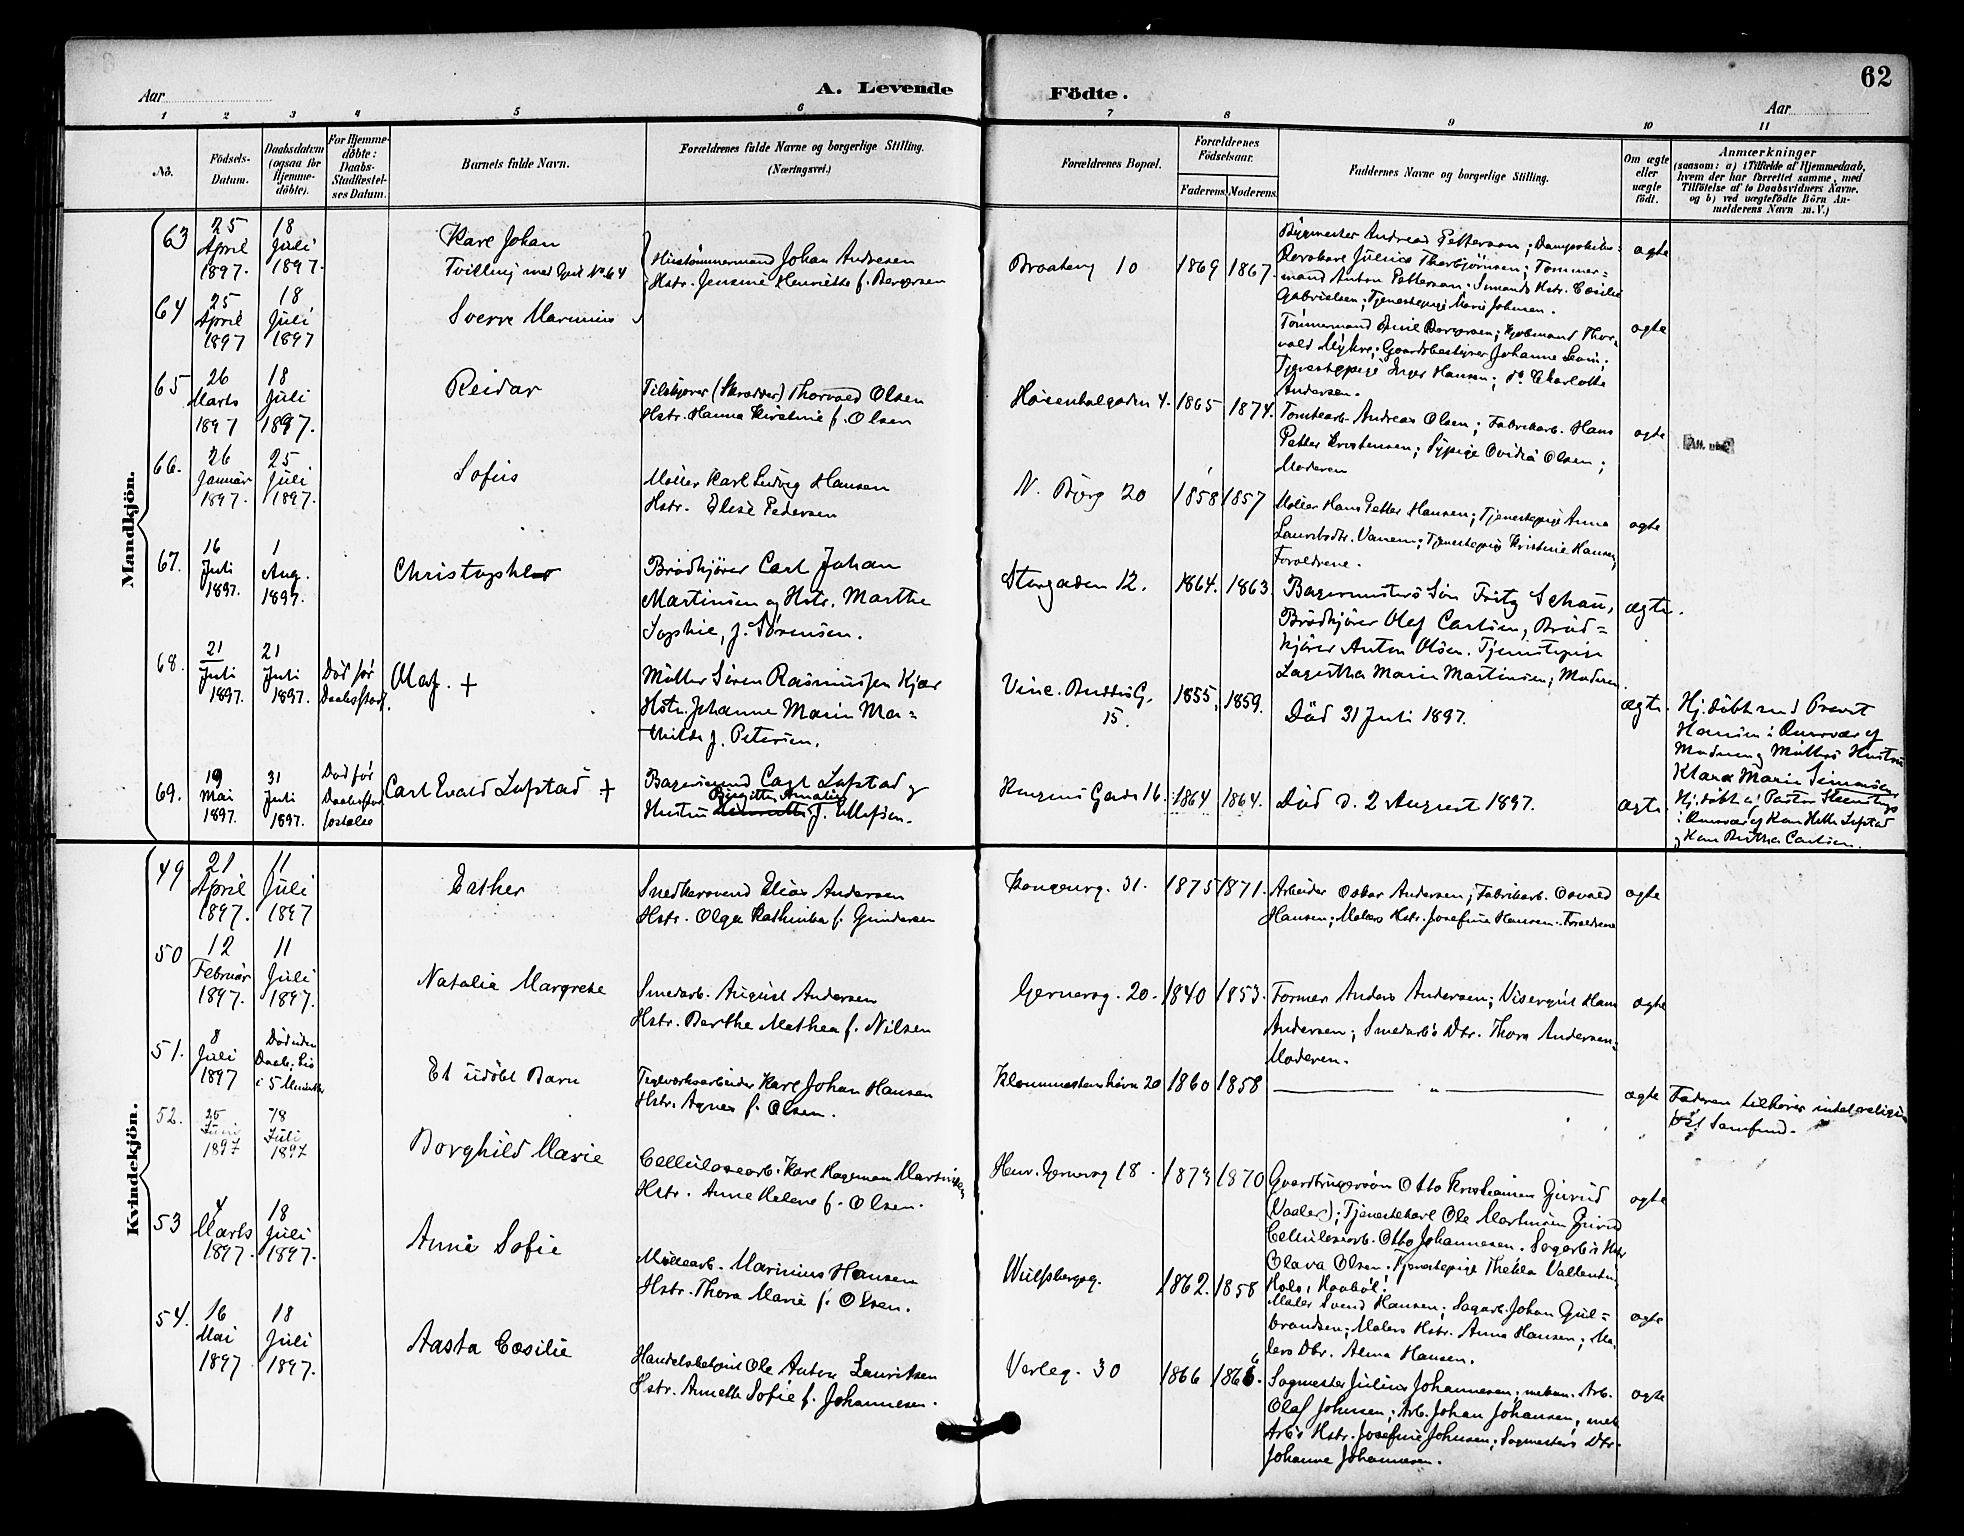 62
Aar
A. Levende Födte.
Aar
1 2 3 4 5 6 7 8 9 10 11
No.
Födsels-
Datum.
Daabsdatum
(ogsaa for
Hjemme-
döbte).
For Hjemme-
döbte:
Daabs-
Stadfæstel-
ses Datum.
Barnets fulde Navn.
Forældrenes fulde Navne og borgerlige Stilling.
(Næringsvei.)
Forældrenes Bopæl.
Forældrenes
Födselsaar.
Faderens.
Moderens.
Faddernes Navne og borgerlige Stilling.
Om ægte
eller
uægte
födt.
Anmærkninger
(saasom: a) i Tilfælde af Hjemmedaab,
hvem der har forrettet samme, med
Tilföielse af to Daabsvidners Navne.
og b) ved uægtefödte Börn An-
melderens Navn m.V.)
Mandkjön.
63
25
April
1897.
18
Juli
1897.
Karl Johan
Tvilling med Gut No 64
Johan Andresen
Hstr. Jensine Henriette f.
Braaterg 10
1869
1867.
Bygmester Andreas Pettersen;
Julius Thorbjörnsen; Tömmer-
mand Anton Pettersen. Sömands Hstr. Cæsilie
Gabrielsen; Tjenestepige Marie Johnsen.
ægte
64
25
April
1897
18
Juli
1897
Sverre Marinius
Tömmermand
Johanne
Tjenestepige Inger Hansen; do Charlotte
Andersen.
ægte
65
26
Marts
1897
18
Juli
1897.
Reidar
Tilskjærer (Skrædder) Thorvald Olsen
Hstr. Hanna Kirstine f. Olsen
4.
1865
1874.
Tomtearb. Andreas Olsen; Fabrikarb. Hans
Petter Kristensen; Sypige Ovidia Olsen;
Moderen
ægte
66.
26
Januar
1897.
25
Juli
1897.
Sofus
Møller Karl Ludvig Hansen
Hstr. Elise Pedersen
N. Bjerg 20
1858
1857
Møller Hans Petter Hansen; Tjenestepige Anna
Tjenestepige Kristine Hansen,
Forældrene.
ægte
67.
16
Juli
1897.
1
Aug.
1897.
Christopher
Brödkjörer Carl Johan
Martinsen og Hstr. Marthe
Sophie, f. Sørensen.
Storgaden 12.
1864.
1863.
Bagermesters Sön Fritz Schau,
Brödkjörer Olaf Carlsen, Bröd=
kjörer Anton Olsen. Tjenestepige
Lagertha Marie Martinsen, Moderen.
ægte.
68.
21
Juli
1897.
21
Juli
1897.
Död för
Olaf. +
Møller Sören Rasmussen Kjær
Hstr. Johanne Marie Ma-
thilde f. Petersen.
Vinc. Buddes G.
15.
1855,
1859.
Död 31 Juli 1897.
ægte.
Hj.döbt ved Provst
Hansen i Overvær af
Moderen og Møllers Hustru
Klara Marie Simonsen
69.
19
Mai
1897.
31
Juli
1897.
Död før
Carl Evald Lofstad +
Bagersvend Carl Lofstad og
Birgitte Amalie
Hustru f. Ellefsen.
16.
1864
1864.
Död d. 2 August 1897.
ægte.
Hj.döbt af Pastor Steenstrup
Kvindekjön.
49
21
April
1897.
11
Juli
1897
Esther
Snedkersvend Elias Andersen
Hstr. Olga Kathinka f. Gundersen
Kongensg. 31.
1875
1871.
Arbeider Oskar Andersen; Fabrikarb. Osvald
Hansen; Malers Hstr. Josefine Hansen. Forældrene
ægte
50
12
Februar
1897.
11
Juli
1897.
Natalie Margrethe
Smedarb. August Andersen
Hstr. Berthe Mathea f. Nilsen
20.
1840
1853.
Former Anders Andersen; Visergut Hans
Andersen; Smedarb's Dtr. Thora Andersen.
Moderen.
ægte
51.
8
Juli
1897
Död uden
Daab; Liv
i 5 Minutter
Et udöbt Barn
Teglværksarbeider Karl Johan Hansen
Hstr. Agnes f. Olsen.
20
1860
1858
"
ægte
Faderen tilhörer intet religi-
öst Samfund.
52.
25
Juni
1897
18
Juli
1897
Borghild Marie
Cellulosearb. Karl Hageman Martinsen
Hstr. Anne Helene f. Olsen.
18.
1870
Gaardbrugersön Otto Kristiansen Gjerud
(Vaaler); Tjenestekarl Ole Martinsen
Cellulosearb. Otto Johannesen. Sagarb's Hstr
Olava Olsen. Tjenestepige Thekla
ægte
53
4
Marts
1897.
18
Juli
1897.
Anna Sofie
Møllearb. Marinius Hansen
Hstr. Thora Marie f. Olsen.
Wulfsbergsg.
1862.
1858
Maler Svend Hansen; Sagarb. Johan Gul=
brandsen; Malers Hstr. Anna Hansen; Ma-
lers Dtr. Alma Hansen.
ægte
54.
16
Mai
1897
18
Juli
1897.
Aasta Cæsilie
Handelsbetjent Ole Anton Lauritsen
Hstr. Annette Sofie f. Johannesen.
Verleg. 30
1866
1866.
Sagmester Julius Johannesen; mekan. Arb.
Olaf Johnsen; Arb. Johan Johansen; mek
Arb's Hstr. Josefine Johnsen; Sagmesters Dtr.
Johanne Johannesen.
ægte